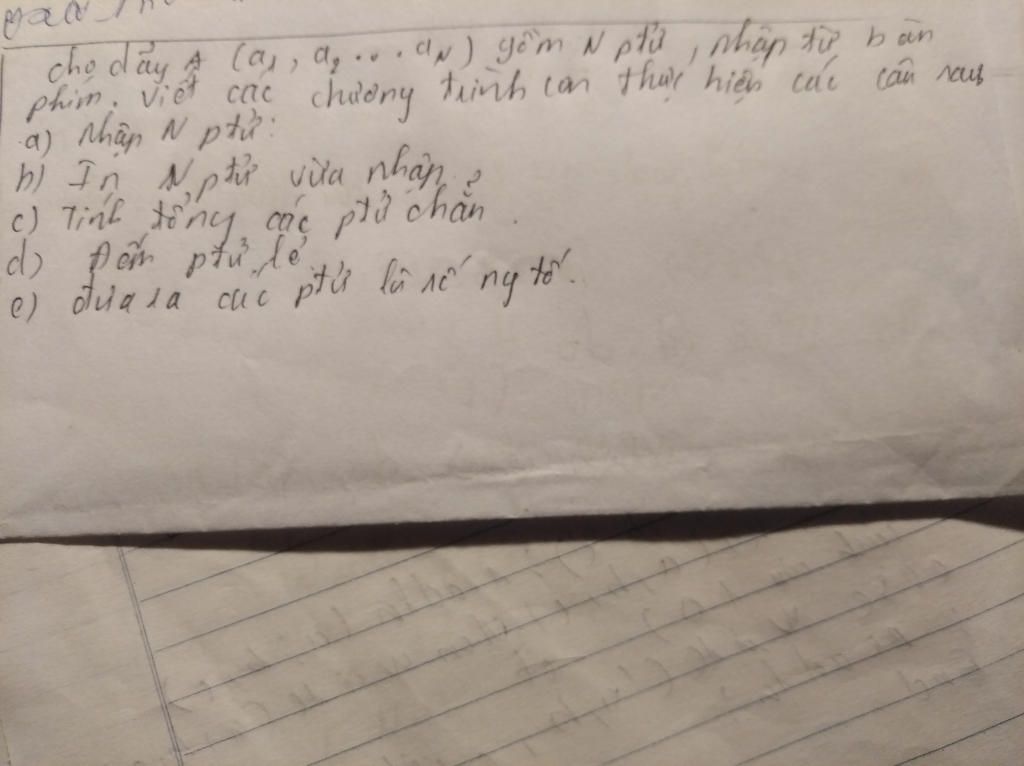 cho dãy A (a1, a2 .... aN) gồm N ptử, nhập từ bàn
phím. viết các chương trình con thực hiện các câu sau
a) Nhập N ptử:
b) In N ptử vừa nhập
c) Tính tổng các ptử chẵn.
d) Đếm ptử lẻ
e) đưa ra các ptử là số ng tố.